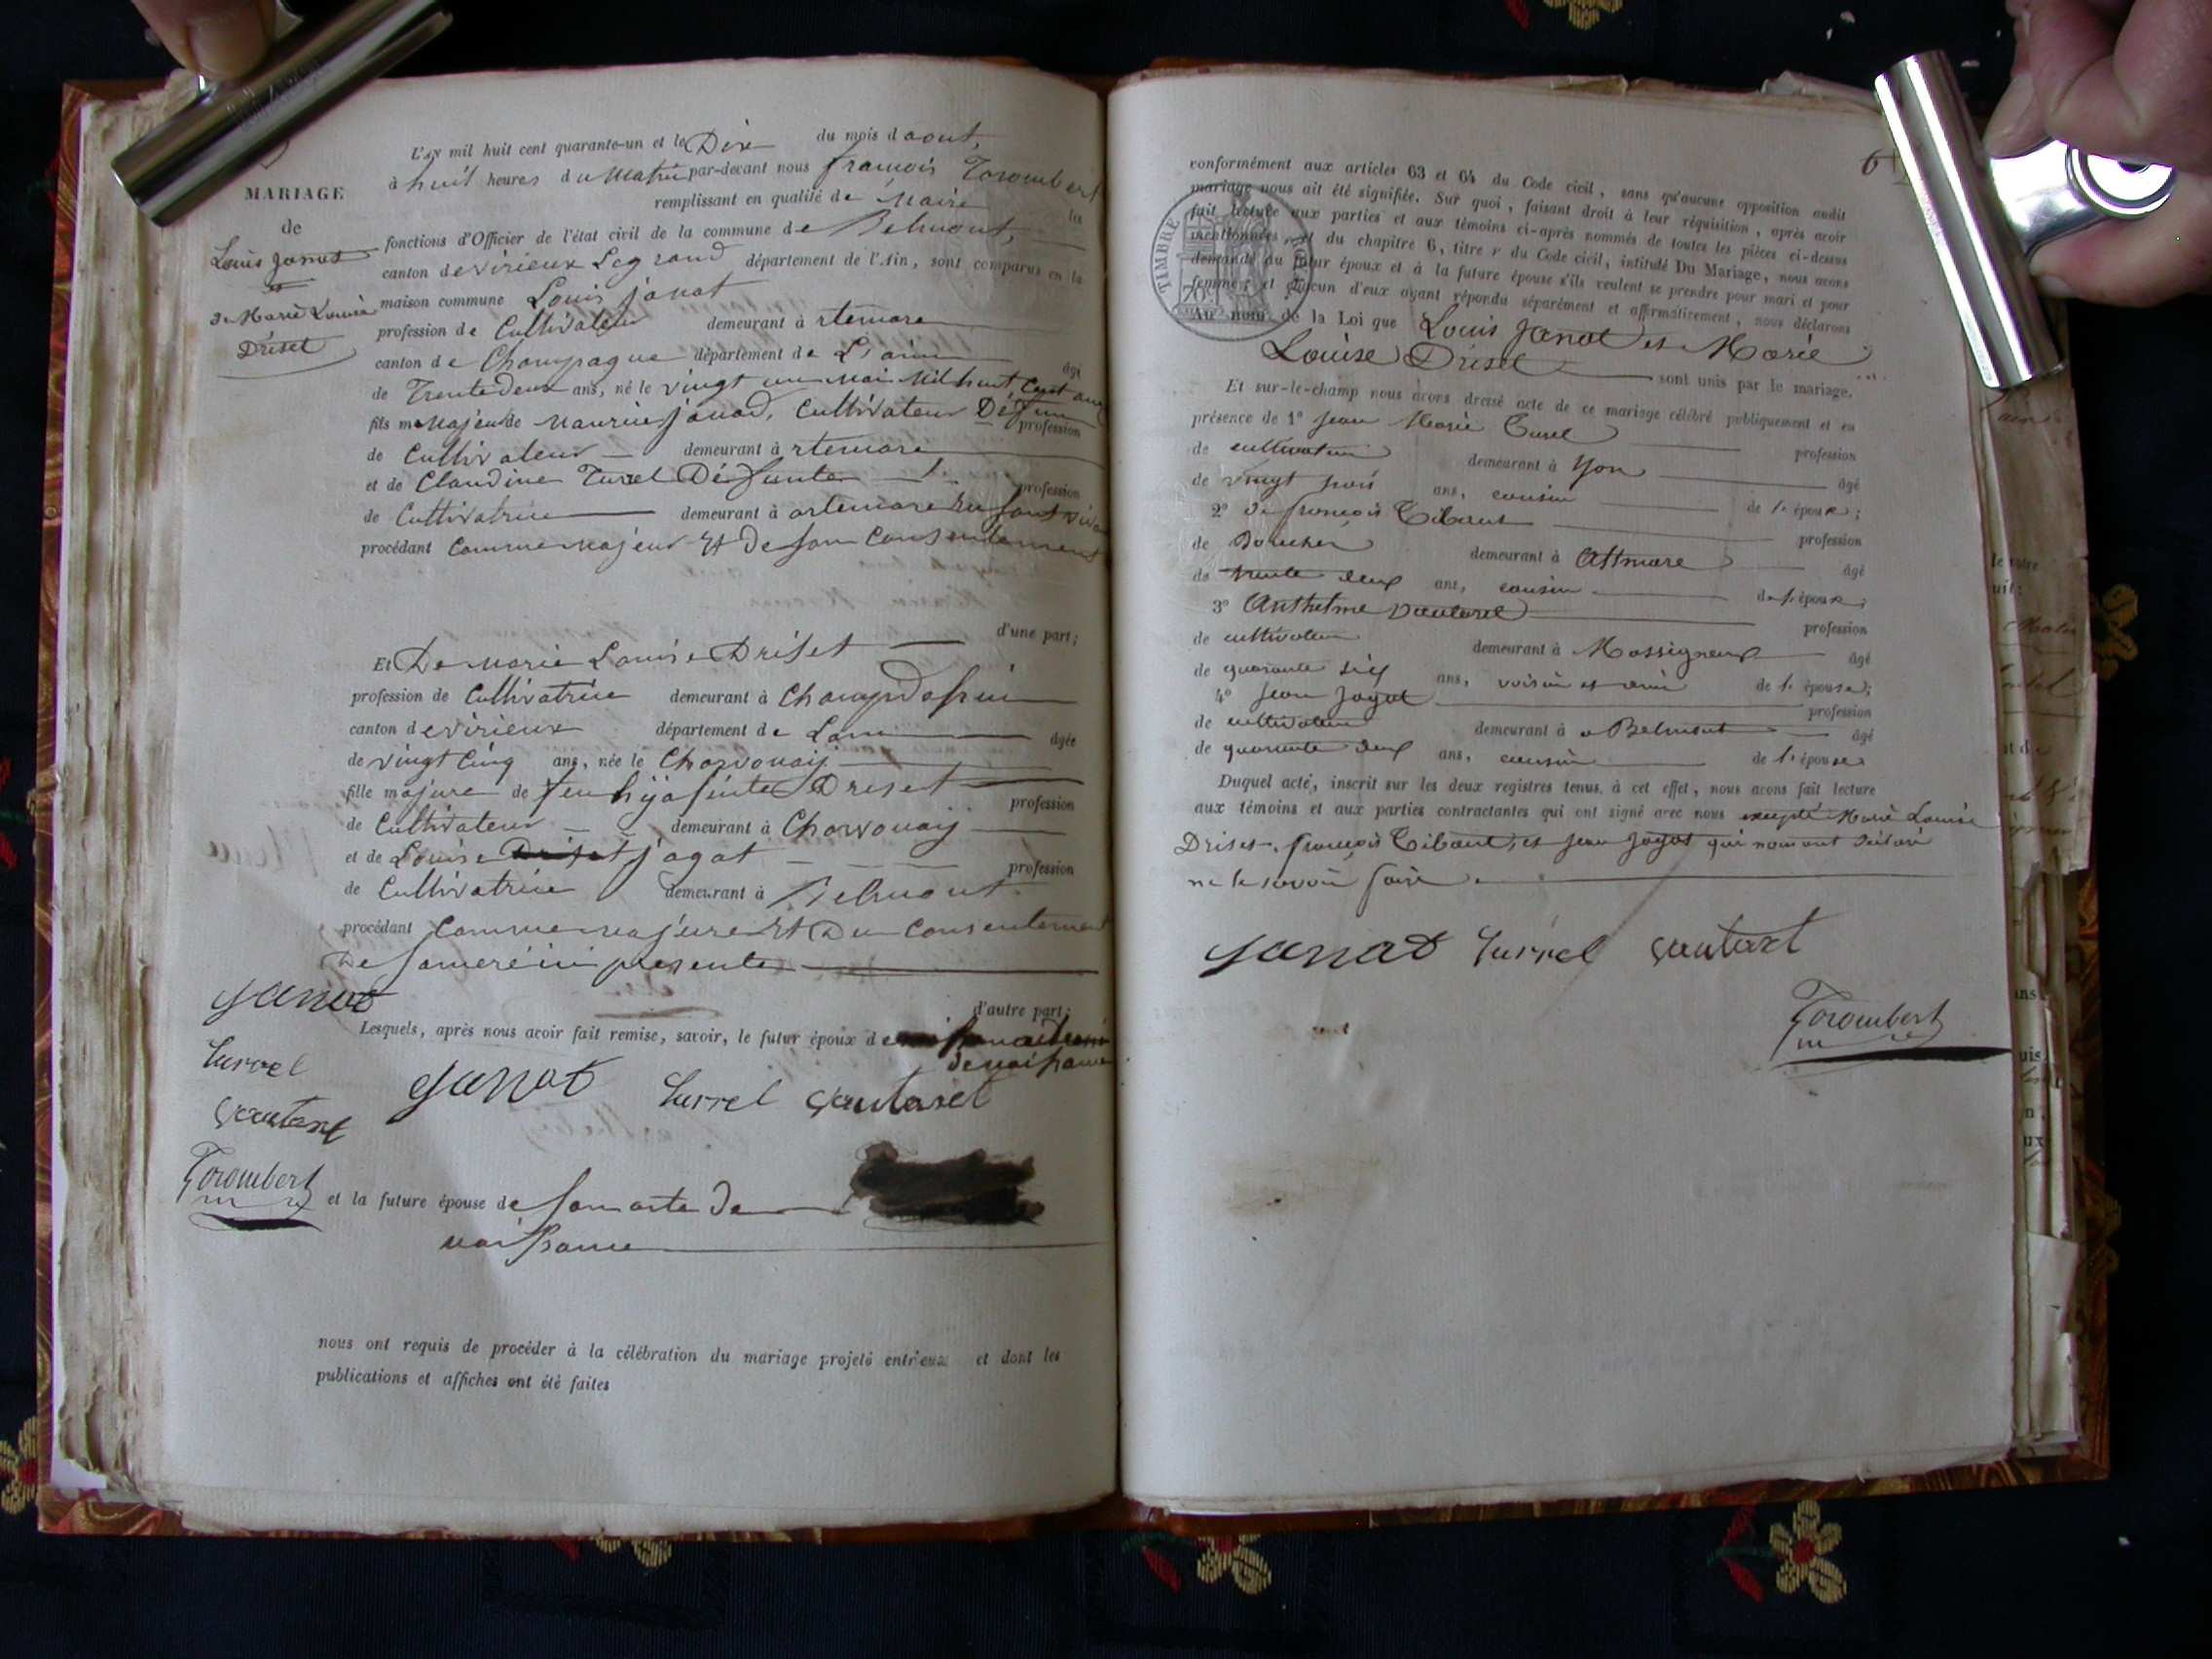 MARIAGE
de
Louis Janat
et
de Marie Louise
Driset
L'an mil huit cent quarante-un et le Dix du mois d aout,
à huit heures du Matin par-devant nous françois Torombert
remplissant en qualité de Maire les
fonctions d'Officier de l'état civil de la commune de Belmont,
canton de virieux Legrand département de l'Ain, sont comparus en la
maison commune Louis janat
profession de Cultivateur demeurant à rtemare
canton de Champagne département de L'ain âgé
de Trente deux ans, né le vingt un mai Mil huit Cent
fils majeur de Maurice janad, Cultivateur Défun profession
de Cultivateur demeurant à rtemare
et de Claudine Turel Défunte profession
de Cultivatrice demeurant à artemare
procédant Comme majeur Et De son Consentement
d'une part;
Et De Marie Louise Driset
profession de Cultivatrice demeurant à
canton de virieux département de Lain âgée
de vingt Cinq ans, née le Charvonaij
fille majure de feu hijasinte Driset profession
de Cultivateur demeurant à Charvonaij
et de Louise jagat profession
de Cultivatrice demeurant à Belmont
procédant Comme majure Et Du Consentement
De sa mere ici presente
d'autre part;
Janat
Lesquels, après nous avoir fait remise, savoir, le futur époux de
de naissance
Turrel
Janat Turrel Vautaret
Vautaret
Torombert
et la future épouse de son acte De
naissance
nous ont requis de procéder à la célébration du mariage projeté entr'eux et dont les
publications et affiches ont été faites
6
conformément aux articles 63 et 64 du Code civil, sans qu'aucune opposition audit
mariage nous ait été signifiée. Sur quoi, faisant droit à leur réquisition, après avoir
fait lecture aux parties et aux témoins ci-après nommés de toutes les pièces ci-dessus
mentionnées, et du chapitre 6, titre v du Code civil, intitulé Du Mariage, nous avons
demandé au futur époux et à la future épouse s'ils veulent se prendre pour mari et pour
femme; et chacun d'eux ayant répondu séparément et affirmativement, nous déclarons
Au nom de la Loi que Louis Janat et Marie
Louise Driset sont unis par le mariage.
TIMBRE
70
Et sur-le-champ nous avons dressé acte de ce mariage célébré publiquement et en
présence de 1° Jean Marie Turel profession
de cultivateur demeurant à Yon âgé
de vingt trois ans, cousin de l'époux;
2° De françois Tibaut profession
de Boucher demeurant à Attmare âgé
de trente deux ans, cousin de l'époux;
3° Anthelme Vautaret profession
de cultivateur demeurant à Massigneux âgé
de quarante six ans, voisin et ami de l'épouse;
4° Jean Jagat profession
de cultivateur demeurant à Belmont âgé
de quarante deux ans, cousin de l'épouse
Duquel acte, inscrit sur les deux registres tenus à cet effet, nous avons fait lecture
aux témoins et aux parties contractantes qui ont signé avec nous excepté Marie Louise
Driset, françois Tibaut, et Jean Jagat qui nous ont déclaré
ne le savoir faire.
Janat Turrel Vautaret
Torombert